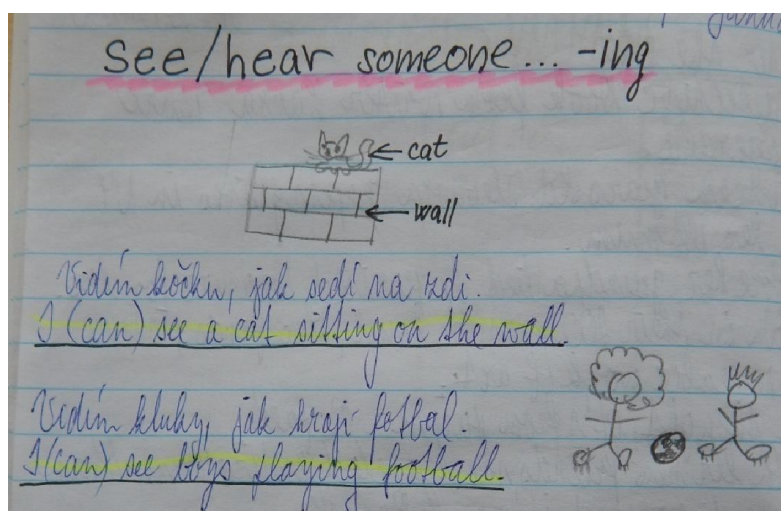 see/hear someone... -ing
cat
wall
Vidím kočku, jak sedí na zdi.
I (can) see a cat sitting on the wall.
Vidím kluky, jak hrají fotbal.
I (can) see boys playing football.